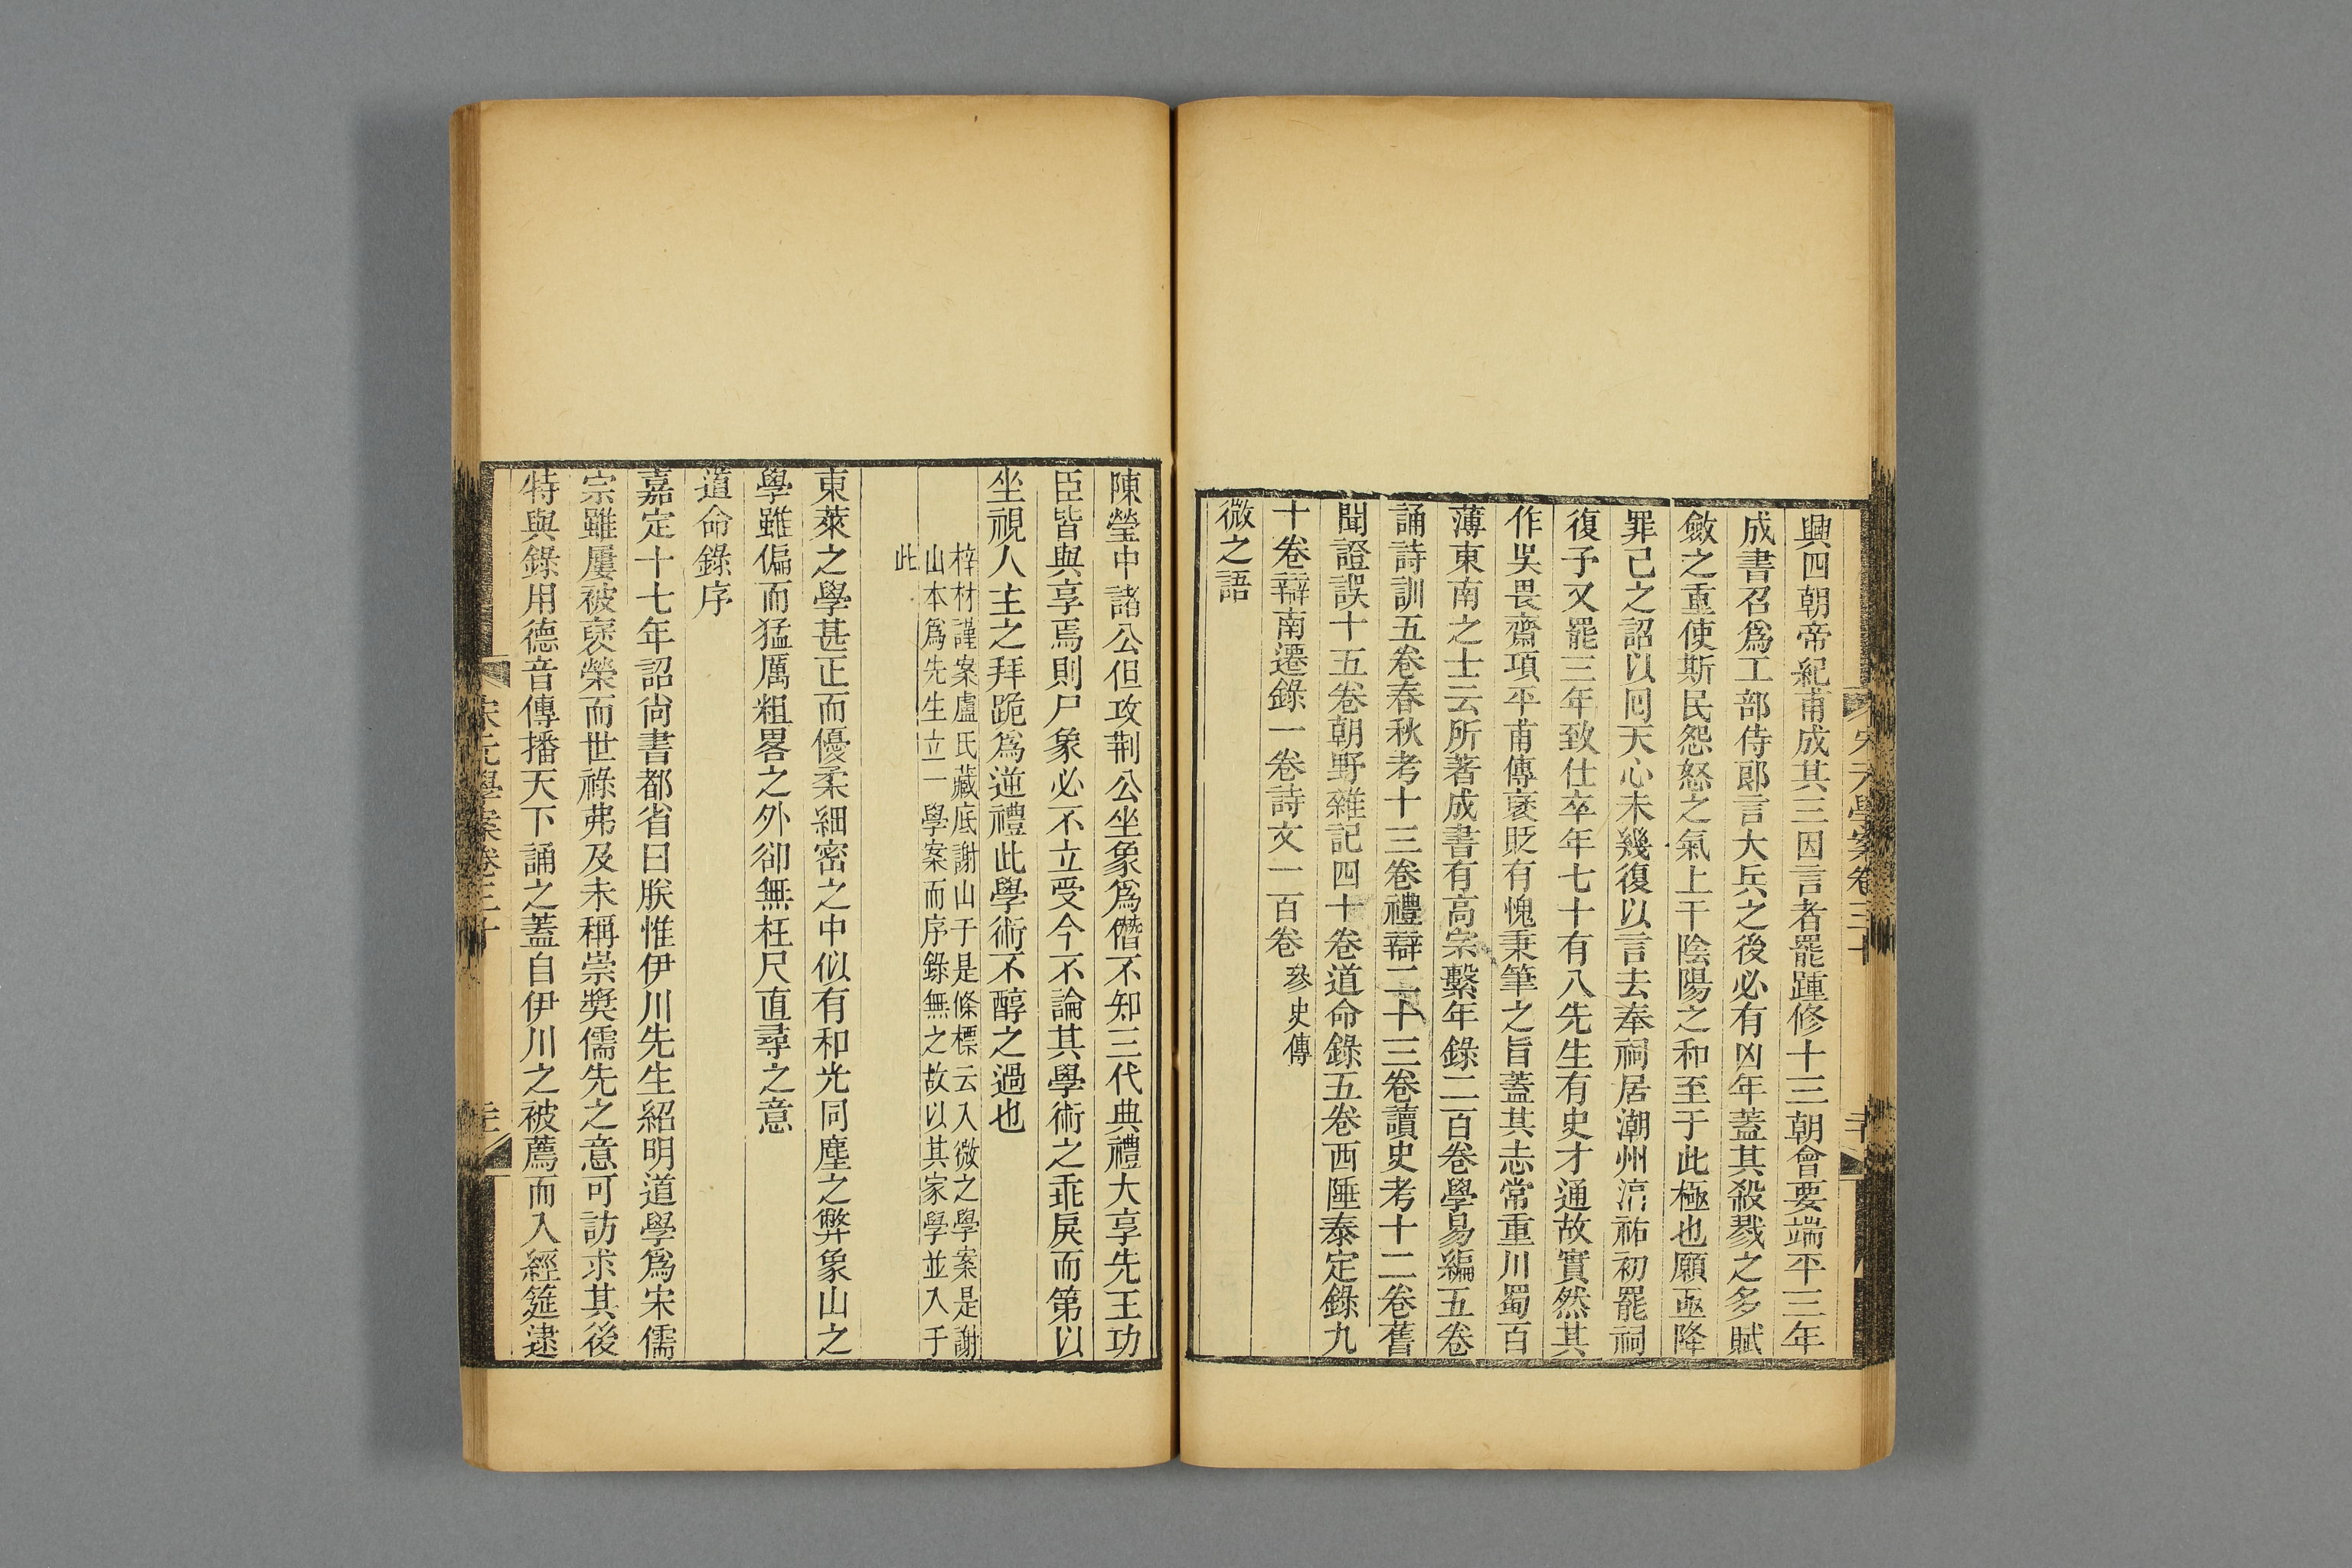 興四朝帝紀甫成其三因言者罷踵修十三朝會要端平三年
成書召爲工部侍郎言大兵之後必有凶年蓋其殺戮之多賦
斂之重使斯民怨怒之氣上干陰陽之和至于此極也願亟降
罪己之詔以囘天心未幾復以言去奉祠居潮州湻祐初罷祠
復予又罷三年致仕卒年七十有八先生有史才通故實然其
作吳畏齋項平甫傳褒貶有愧秉筆之旨蓋其志常重川蜀百
薄東南之士云所著成書有高宗繫年錄二百卷學易編五卷
誦詩訓五卷春秋考十三卷禮辯二十三卷讀史考十二卷舊
聞證誤十五卷朝野雜記四十卷道命錄五卷西陲泰定錄九
十卷辯南遷錄一卷詩文一百卷參史傳
微之語
陳瑩中諸公但攻荆公坐象爲僭不知三代典禮大享先王功
臣皆與享焉則尸象必不立受今不論其學術之乖戾而第以
坐視人主之拜跪爲逆禮此學術不醇之過也
梓材謹案盧氏藏底謝山于是條標云入微之學案是謝
山本爲先生立一學案而序錄無之故以其家學並入于
此
東萊之學甚正而優柔細密之中似有和光同塵之弊象山之
學雖偏而猛厲粗畧之外卻無枉尺直尋之意
道命錄序
嘉定十七年詔尚書都省曰朕惟伊川先生紹明道學爲宋儒
宗雖屢被襃榮而世祿弗及未稱崇奬儒先之意可訪求其後
特與錄用德音傳播天下誦之蓋自伊川之被薦而入經筵逮
宋元學案卷三十